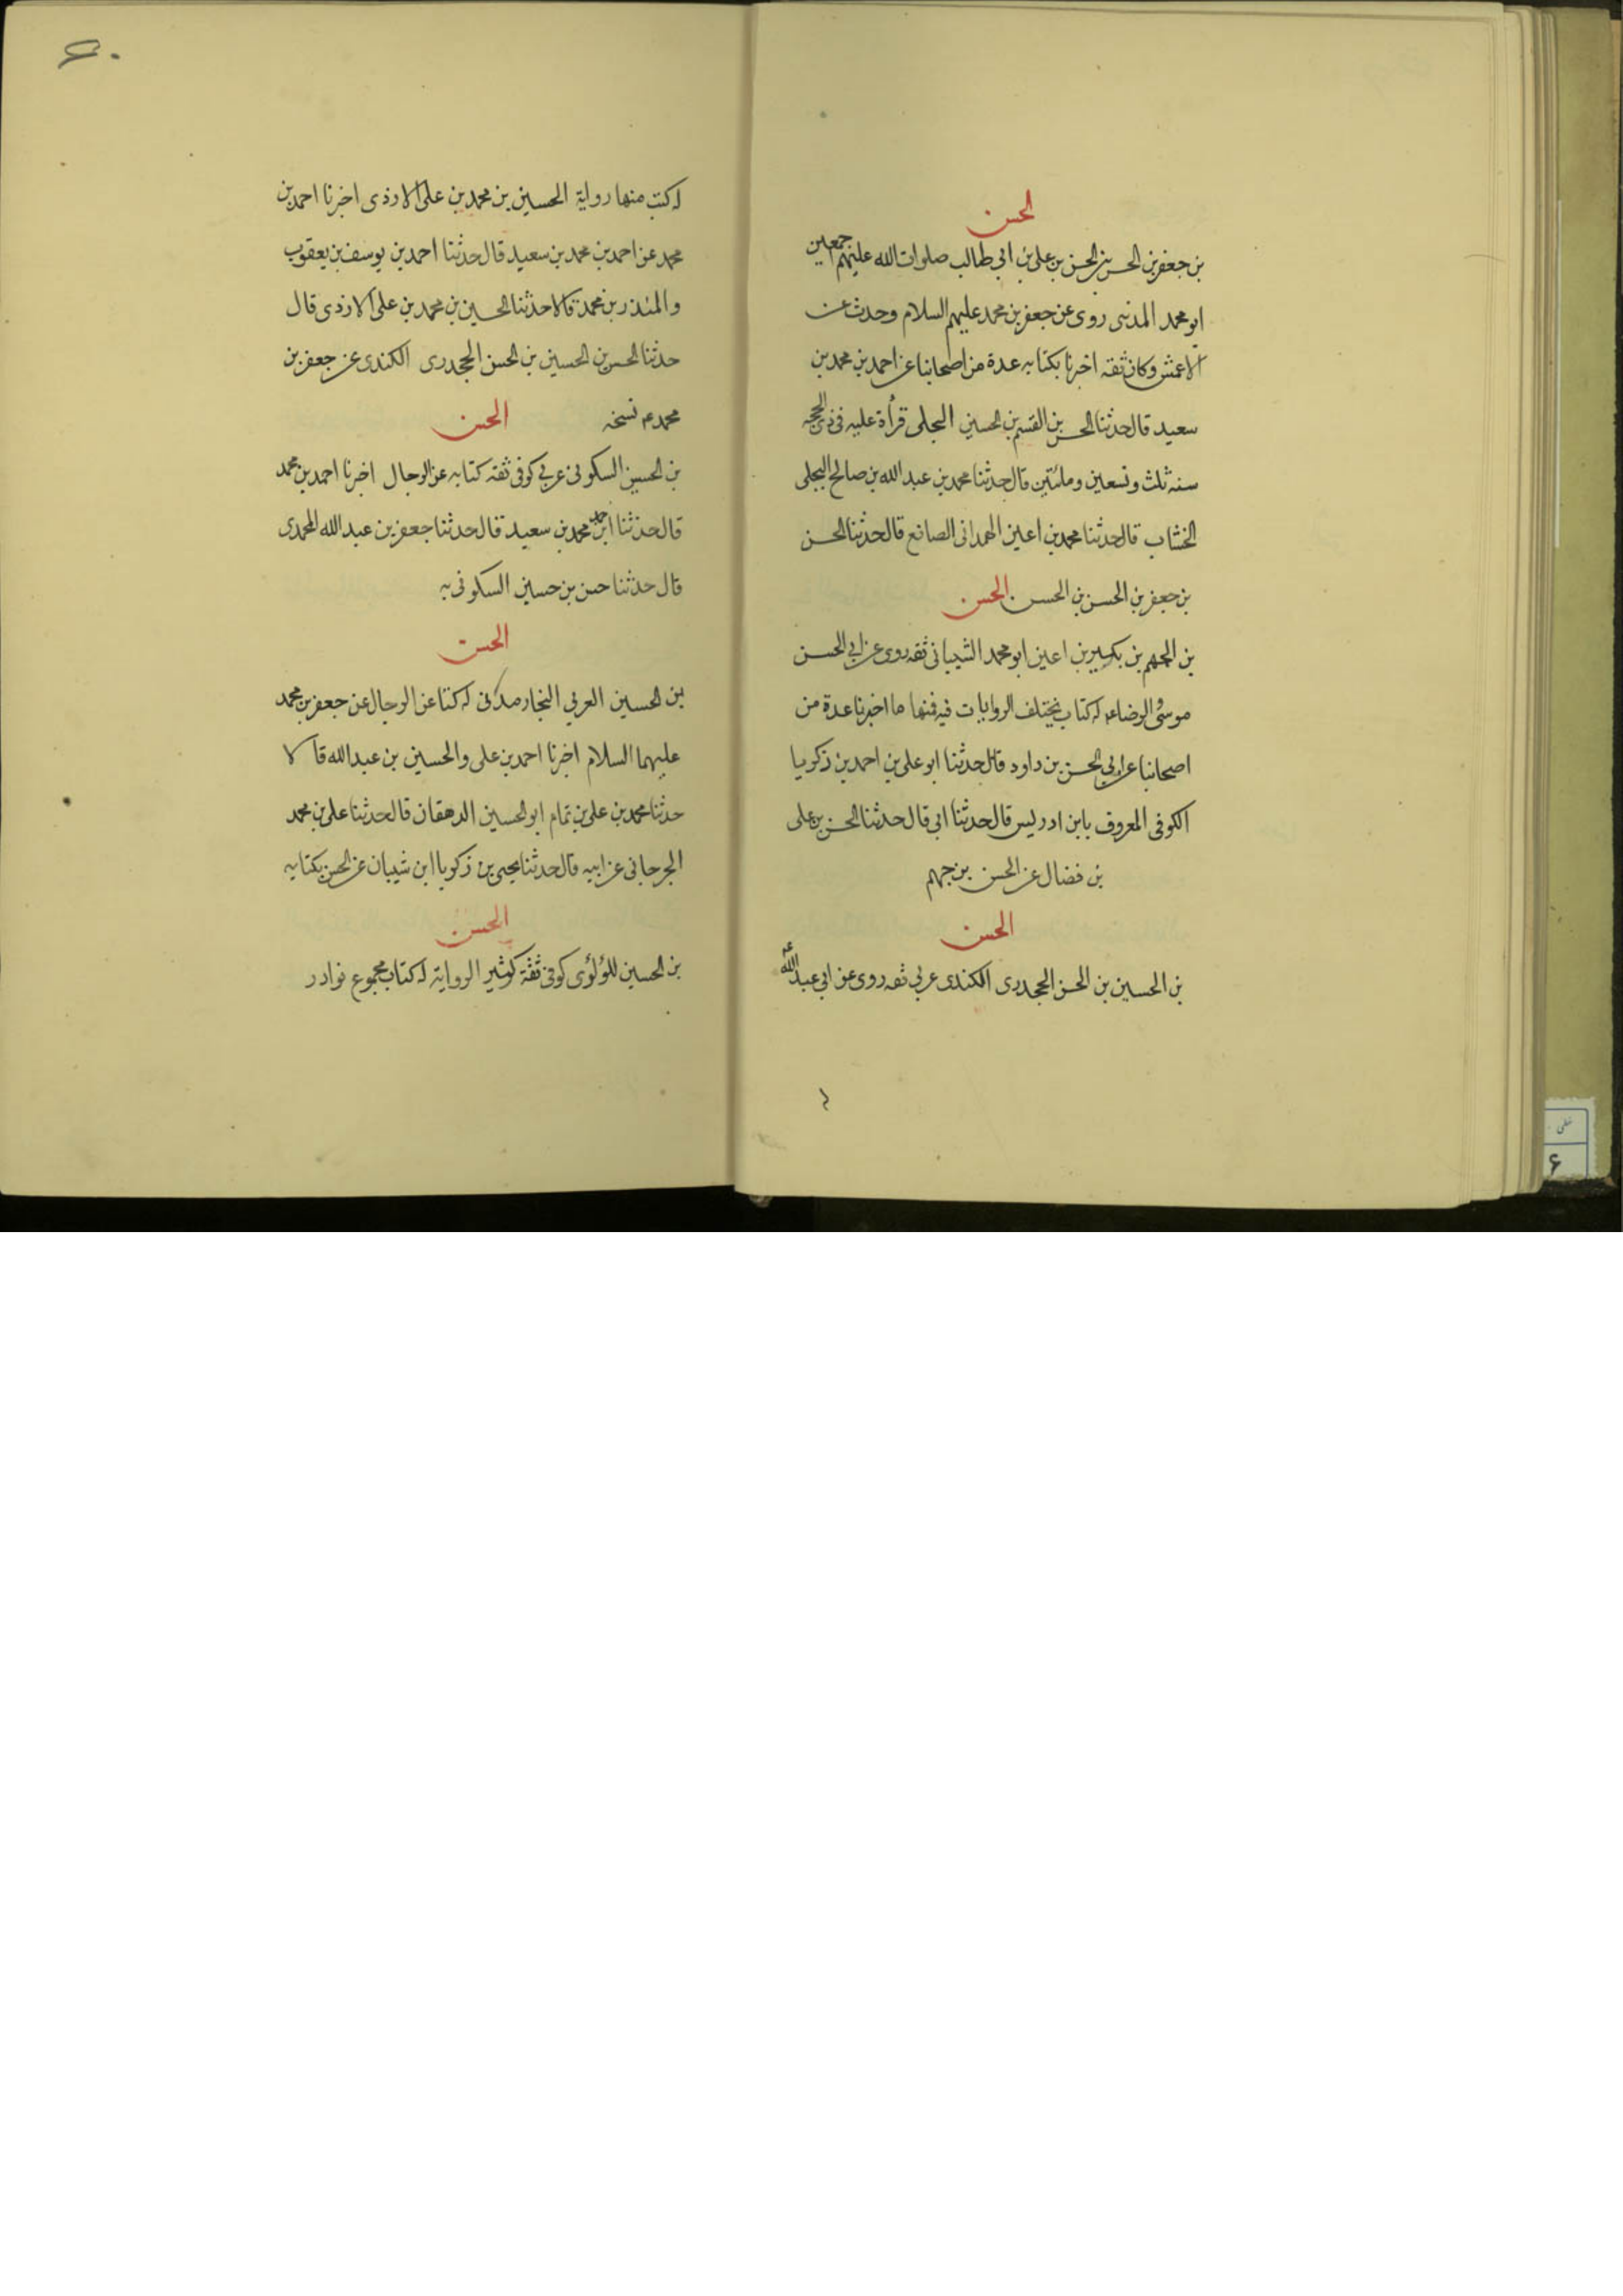 الحسن
بن جعفر بن الحسن بن الحسن بن علي بن ابي طالب صلوات الله عليهم اجمعين
ابو محمد المدنى روى عن جعفر بن محمد عليهم السلام وحدث عن
الاعمش وكان ثقه اخبرنا بكتابه عدة من اصحابنا عن احمد بن محمد بن
سعيد قال حدثنا الحسن بن القسم بن الحسين البجلى قرأة عليه فى ذى الحجه
سنه ثلث وتسعين ومائتين قال حدثنا محمد بن عبد الله بن صالح البجلى
الخشاب قال حدثنا محمد بن اعين الهمدانى الصائع قال حدثنا الحسن
بن جعفر بن الحسن بن الحسن الحسن
بن الجهم بن بكير بن اعين ابو محمد الشيبانى ثقه روى عن ابي الحسن
موسى الرضا عم له كتاب يختلف الروايات فيه فمنها ما اخبرنا عدة من
اصحابنا عن ابي الحسن بن داود قال حدثنا ابو على بن احمد بن زكريا
الكوفى المعروف بابن ادريس قال حدثنا ابي قال حدثنا الحسن بن على
بن فضال عن الحسن بن جهم
الحسن
بن الحسين بن الحسن الجحدرى الكندى عربي ثقه روى عن ابي عبد الله عم
له
۶۰
له كتب منها رواية الحسين بن محمد بن على الازدى اخبرنا احمد بن
محمد عن احمد بن محمد بن سعيد قال حدثنا احمد بن يوسف بن يعقوب
والمنذر بن محمد قالا حدثنا الحسين بن محمد بن على الازدى قال
حدثنا الحسن بن الحسين بن الحسن الجحدرى الكندى عن جعفر بن
محمد عم نسخه الحسن
بن الحسين السكونى عربي كوفى ثقه كتابه عن الرجال اخبرنا احمد بن محمد
قال حدثنا احمد بن محمد بن سعيد قال حدثنا جعفر بن عبد الله المحمدى
قال حدثنا حسن بن حسين السكونى به
الحسن
بن الحسين العربي النجار مدنى له كتا عن الرجال عن جعفر بن محمد
عليهما السلام اخبرنا احمد بن على والحسين بن عبد الله قالا
حدثنا محمد بن على بن تمام ابو الحسين الدهقان قال حدثنا على بن محمد
الجرجانى عن ابيه قال حدثنا يحيى بن زكريا ابن شيبان عن الحسن بكتابه
الحسن
بن الحسين للؤلؤى كوفى ثقة كثير الرواية له كتاب مجموع نوادر
خطى
۶